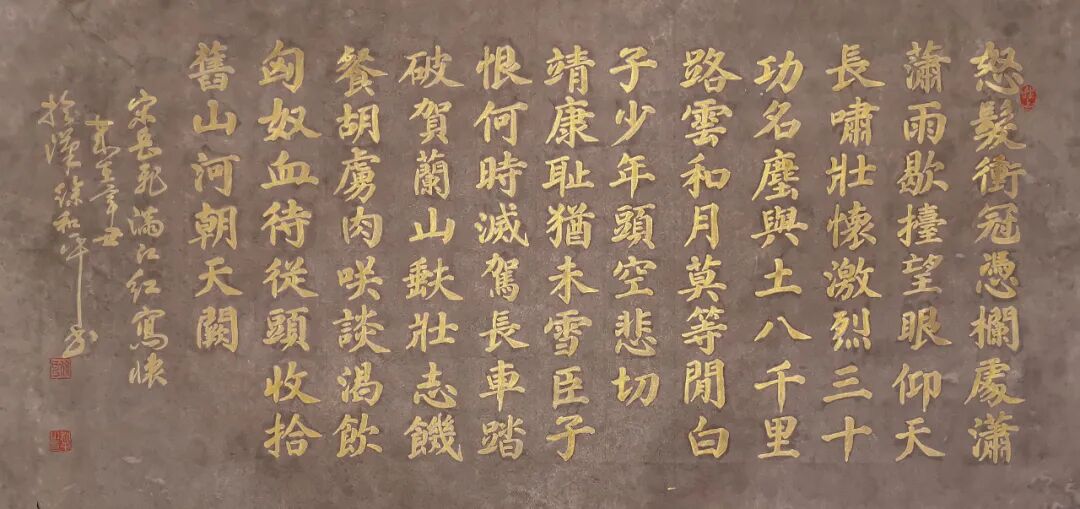 怒髮衝冠憑欄處瀟
瀟雨歇擡望眼仰天
長嘯壯懷激烈三十
功名塵與土八千里
路雲和月莫等閒白
了少年頭空悲切
靖康耻猶未雪臣子
恨何時滅駕長車踏
破賀蘭山缺壯志饑
餐胡虜肉咲談渴飲
匈奴血待從頭收拾
舊山河朝天闕
宋岳飛滿江紅寫懷
歲在辛丑
於漢徐和平書